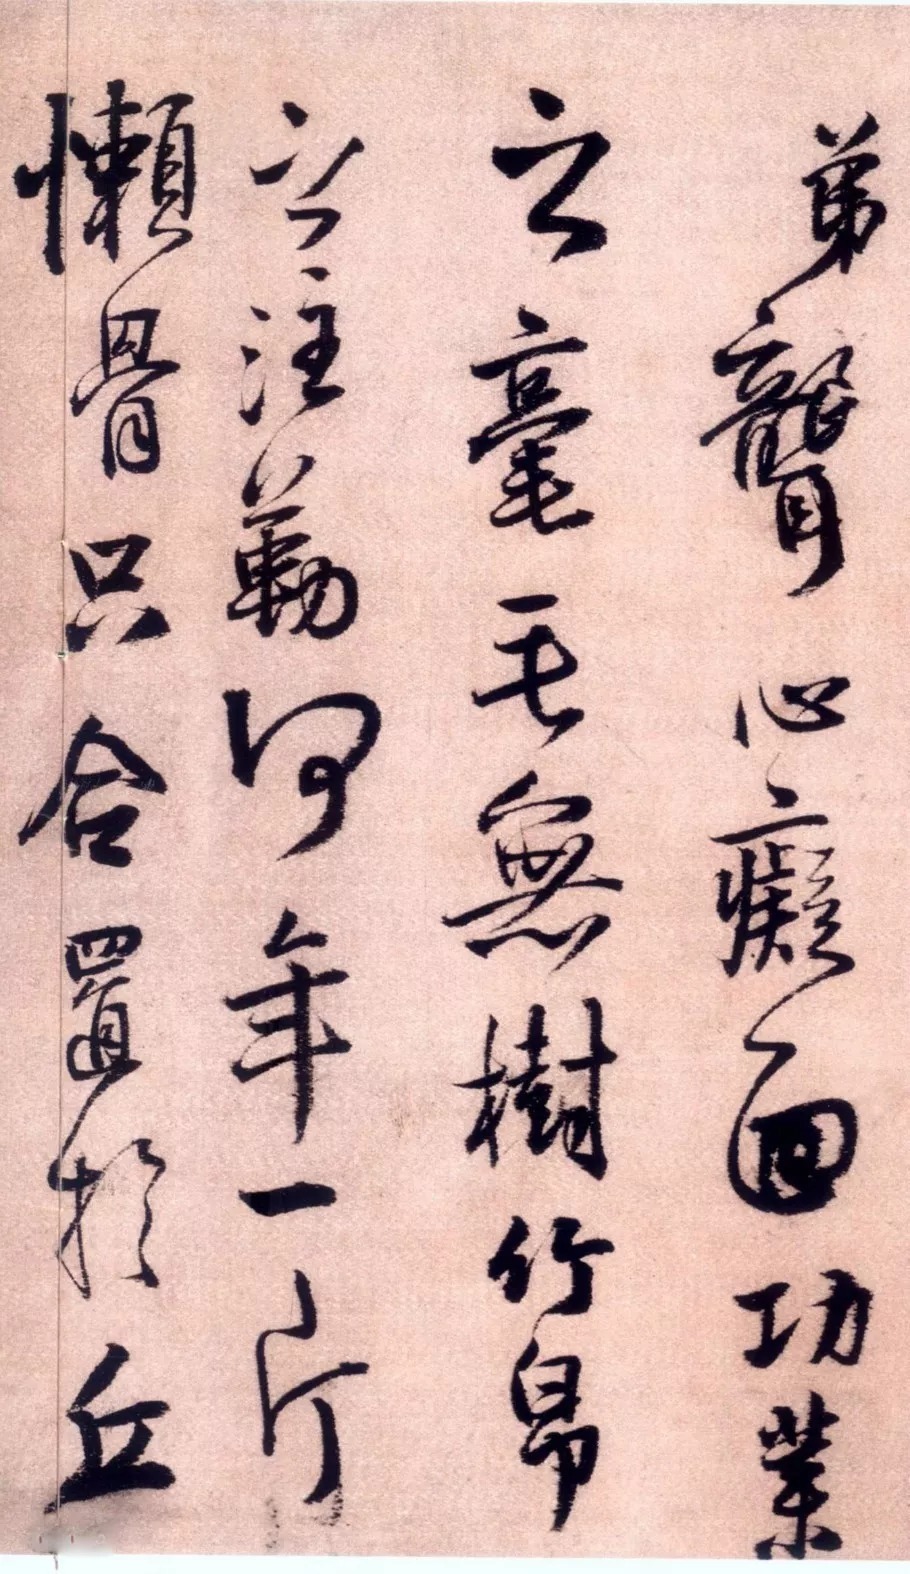 弟聾心癡面功業
之毫毛無樹竹帛
之注勒何年一片
懶骨只合置於丘